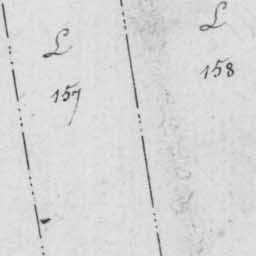 L
157
L
158